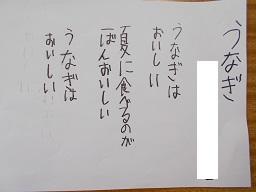 うなぎ
うなぎは
おいしい
夏に食べるのが
一ばんおいしい
うなぎは
おいしい